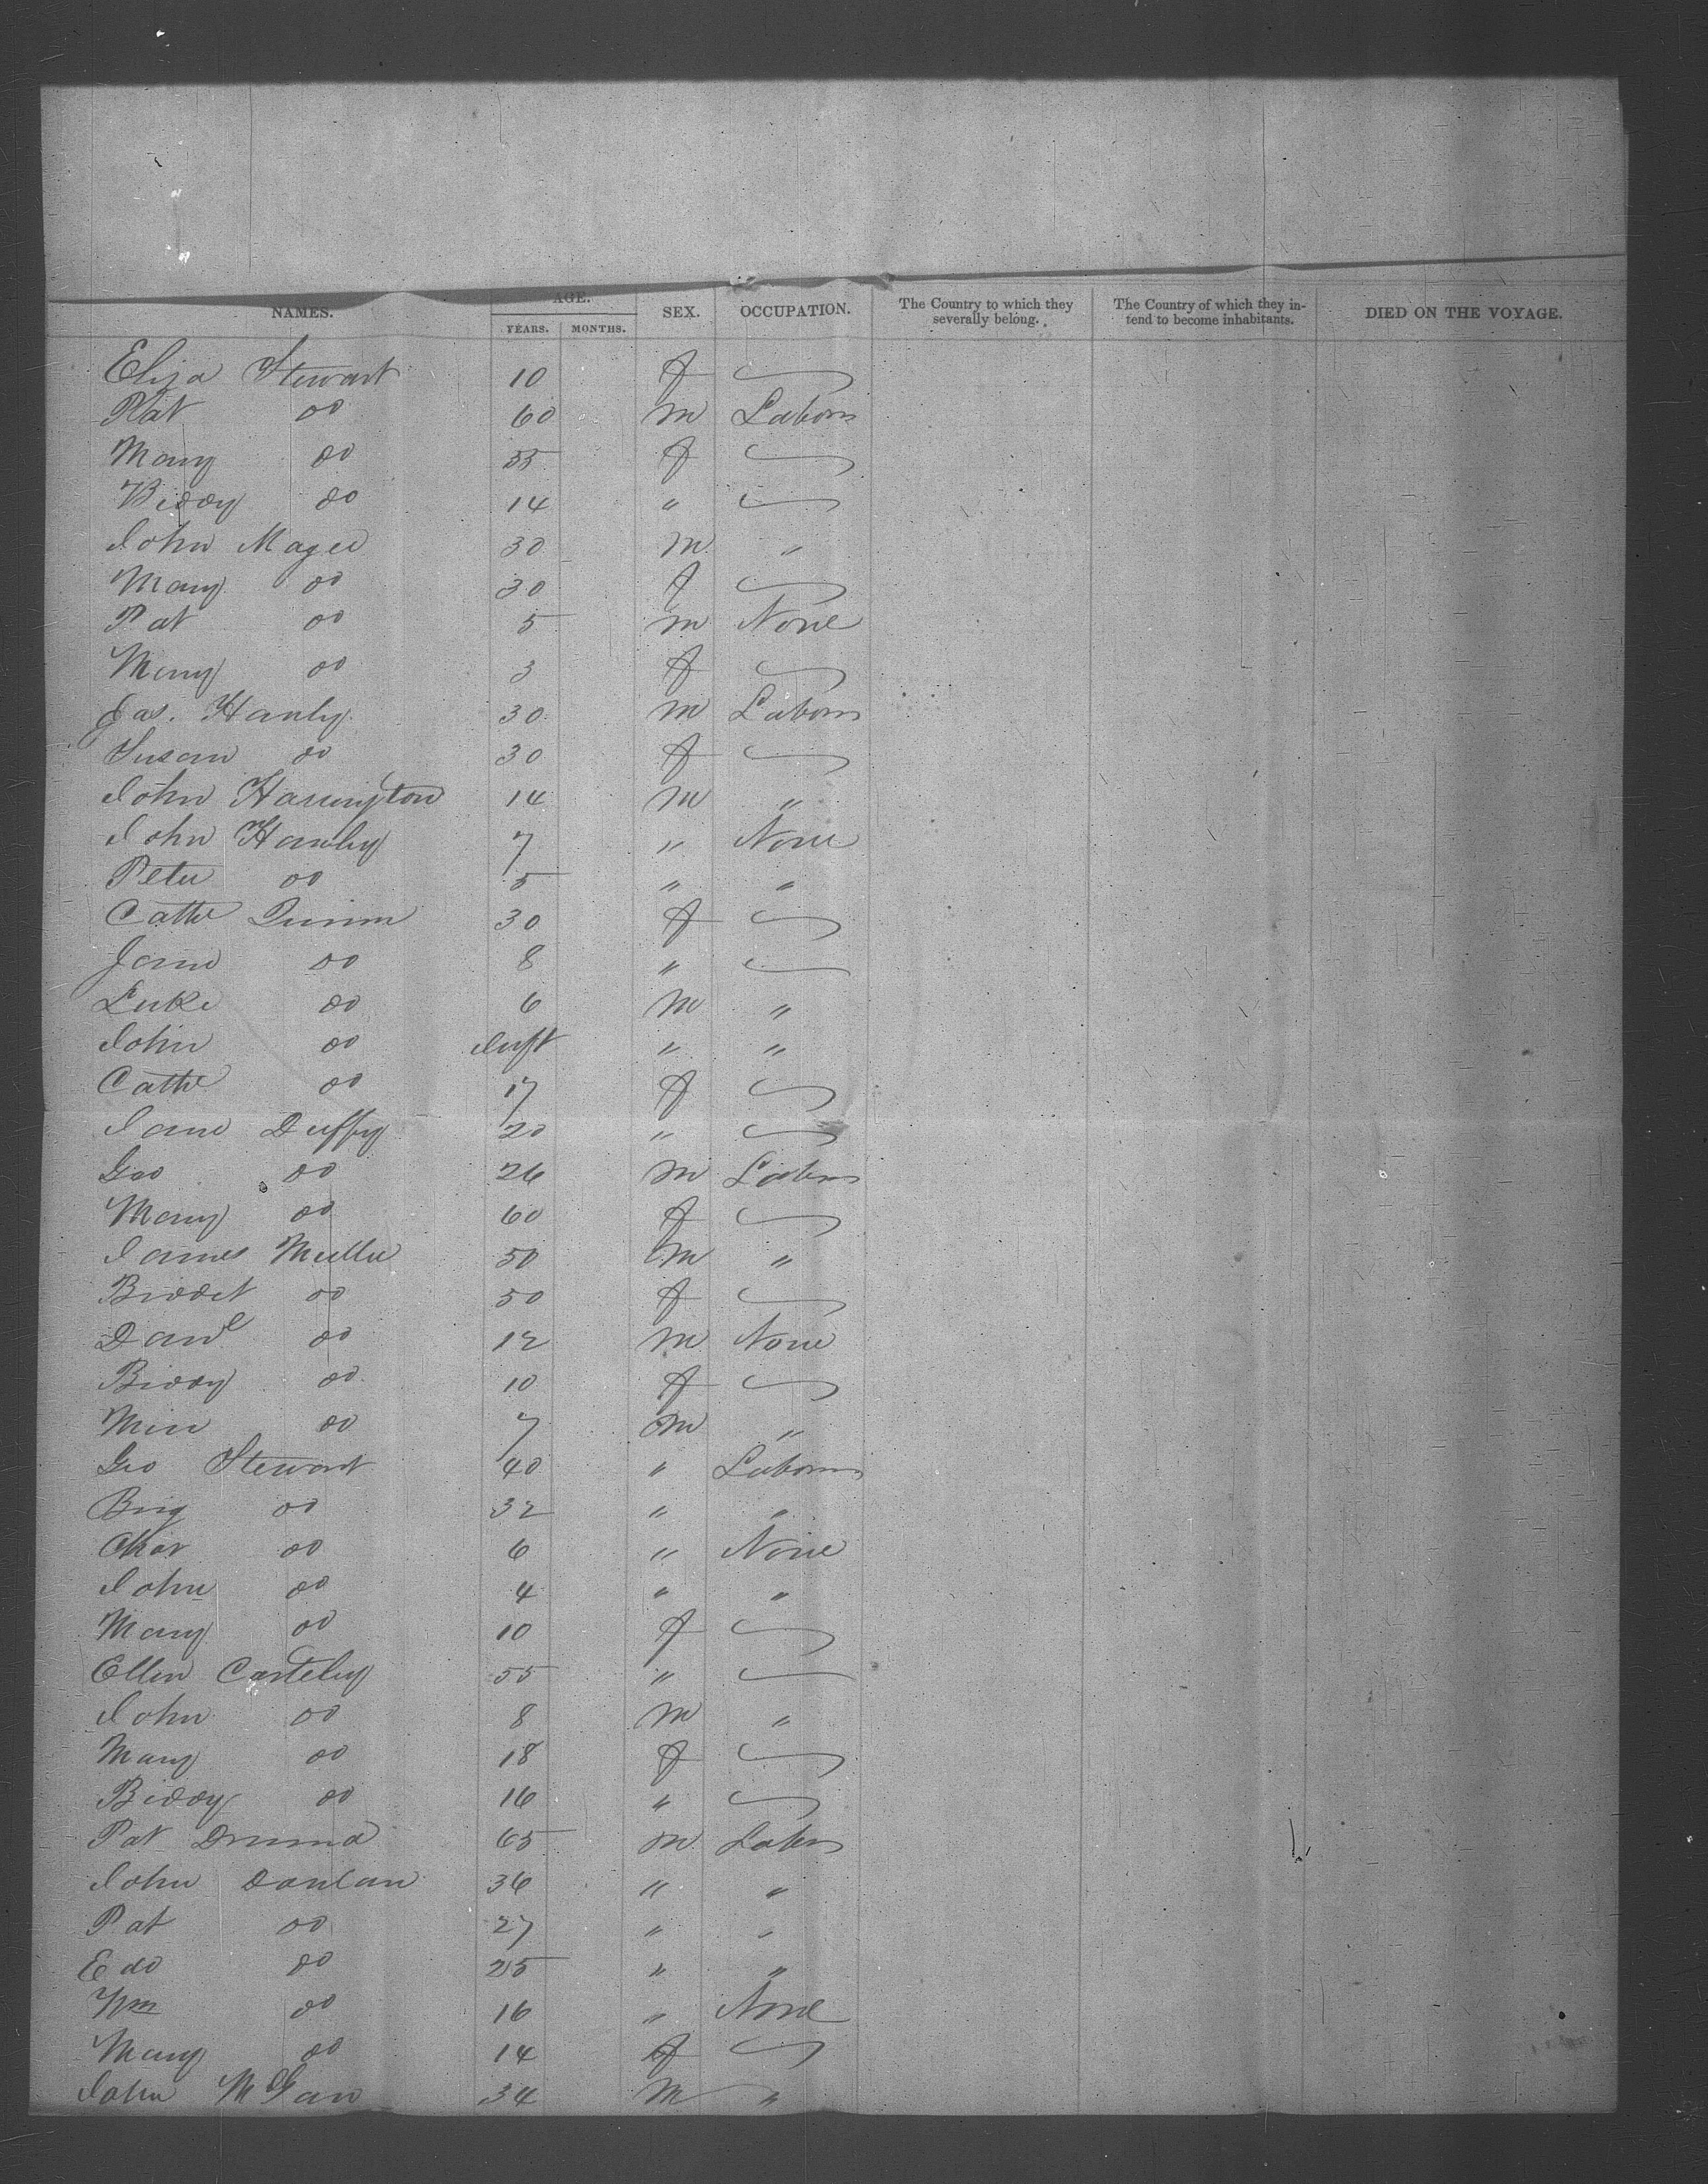 NAMES. AGE. SEX. OCCUPATION. The Country to which they severally belong. The Country of which they intend to become inhabitants. DIED ON THE VOYAGE.
YEARS. MONTHS.
Eliza Stewart 10 f
Pat do 60 m Laborer
Mary do 55 f
Biddy do 14 "
John Magee 30 m "
Mary do 30 f
Pat do 5 m None
Mary do 3 f
Jas. Hanly 30 m Laborer
Susan do 30 f
John Harrington 14 m "
John Hanly 7 " None
Peter do 5 " "
Cathe Quinn 30 f
Jane do 8 "
Luke do 6 m "
John do Inft " "
Cathe do 17 f
Jane Duffy 20 "
Geo do 26 m Labrs
Mary do 60 f
James Muller 50 m "
Briddet do 50 f
Danl do 12 m None
Biddy do 10 f
do 7 m "
Geo Stewart 40 " Laborer
Brig do 32 " "
do 6 " None
John do 4 " "
Mary do 10 f
Ellen 55 "
John do 8 m "
Mary do 18 f
Biddy do 16 "
Pat 65 m Labrs
John Donlan 36 " "
Pat do 27 " "
Edd do 25 " "
Wm do 16 " None
Mary do 14 f
John 34 m "